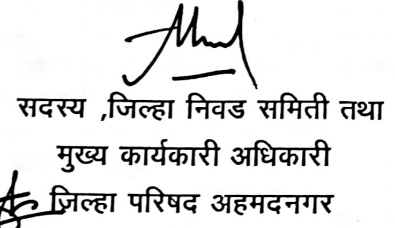 सदस्य ,जिल्हा निवड समिती तथा
मुख्य कार्यकारी अधिकारी
जिल्हा परिषद अहमदनगर